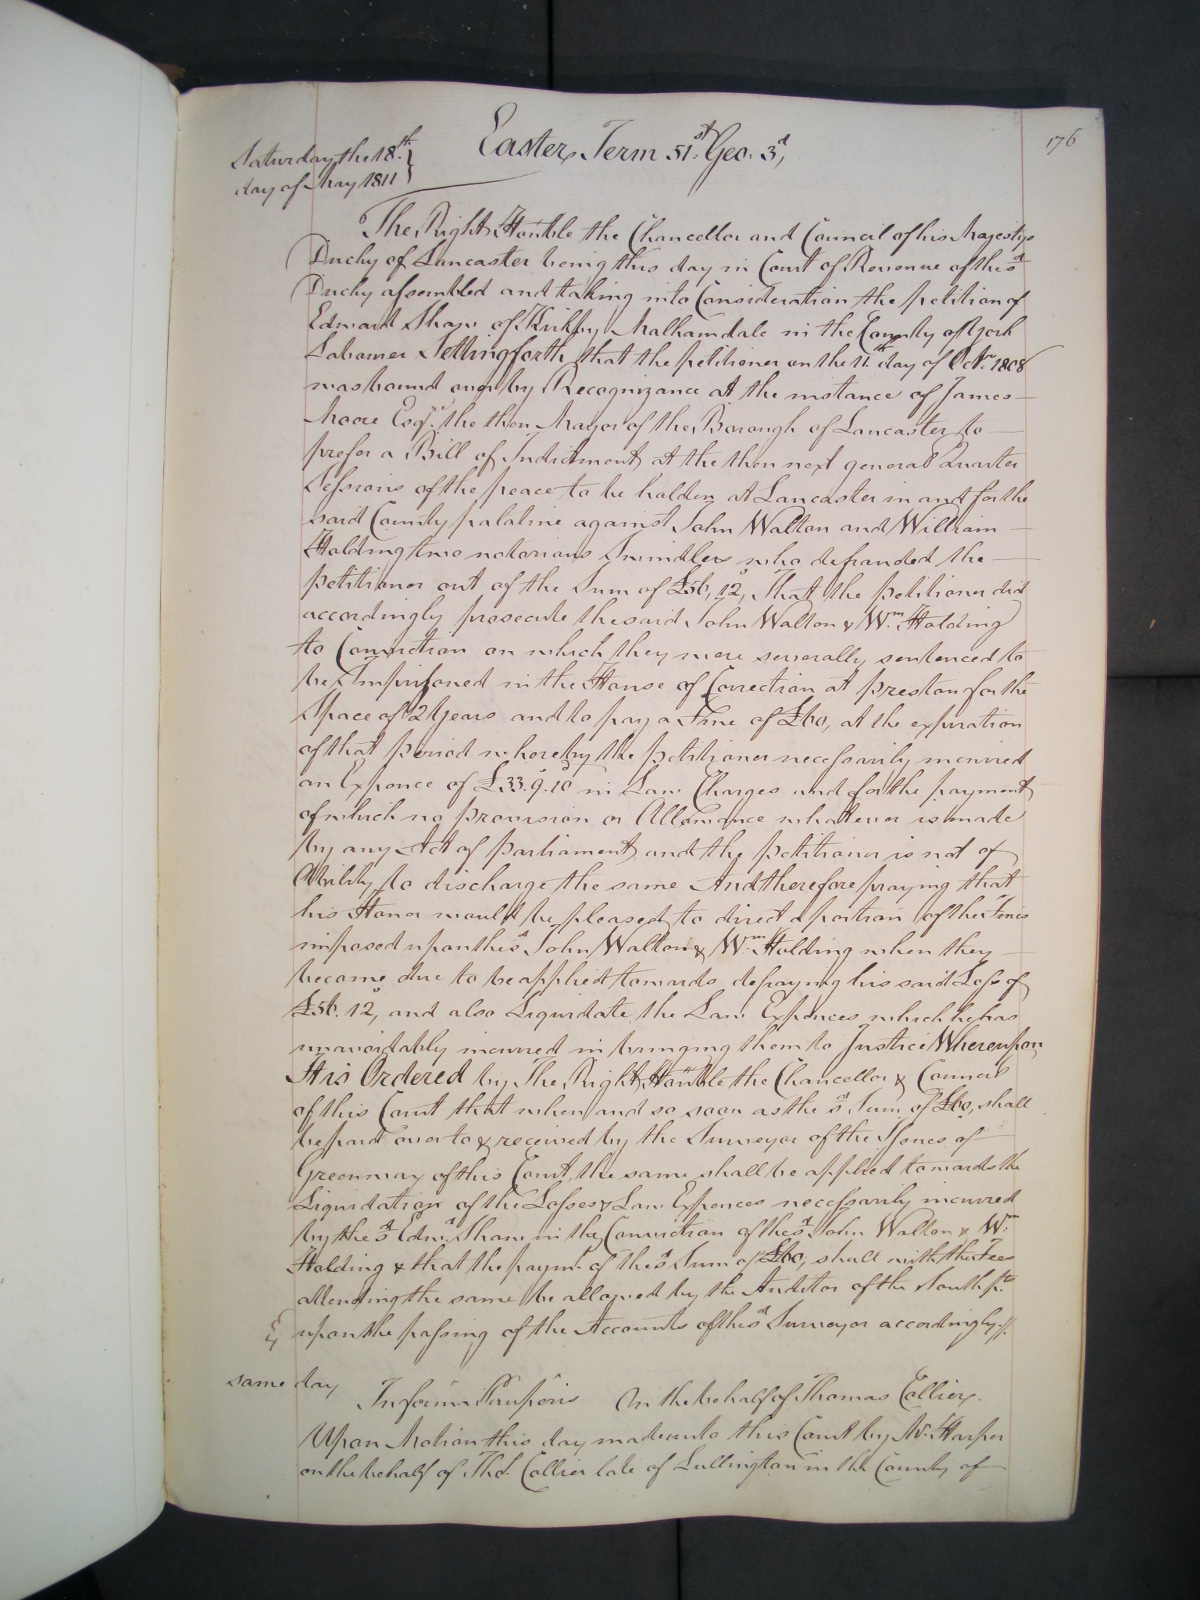 176
Easter Term 51st. Geo. 3d,
Saturday the 18th.
day of May 1811
The Right Honble the Chancellor and Council of his Majestys
Duchy of Lancaster being this day in Court of Revenue of the sd
Duchy assembled and taking into Consideration the petition of
Edward Shaw of Kirkby Malhamdale in the County of York
Labourer Setting forth that the petitioner on the 11th day of Octr. 1808
was bound over by Recognizance at the instance of James
Moore Esqre. the then Mayor of the Borough of Lancaster to
prefer a Bill of Indictment at the then next general Quarter
Sessions of the peace to be holden at Lancaster in and for the
said County palatine against John Walton and William
Holding two notorious Swindlers who defrauded the
petitioner out of the Sum of £56, 12s, That the petitioner did
accordingly prosecute the said John Walton & Wm. Holding
to Conviction on which they were severally sentenced to
be Imprisoned in the House of Correction at Preston for the
Space of 2 Years and to pay a Fine of £60, at the expiration
of that period whereby the petitioner necessarily incurred
an Expence of £33. 9. 10 in Law Charges and for the payment
of which no provision or Allowance whatever is made
by any Act of Parliament and the petitioner is not of
Ability to discharge the same And therefore praying that
his Honor would be pleased to direct a portion of the Fines
imposed upon the sd John Walton & Wm. Holding when they
became due to be applied towards defraying his said Loss of
£56. 12s, and also Liquidate the Law Expences which he has
unavoidably incurred in bringing them to Justice Whereupon
It is Ordered by The Right Honble the Chancellor & Council
of this Court that when and so soon as the sd Sum of £60, shall
be paid over to & received by the Surveyor of the Issues of
Greenwax of this Court the same shall be applied towards the
Liquidation of the Losses & Law Expences necessarily incurred
by the sd Edwd. Shaw in the Conviction of the sd John Walton & Wm.
Holding & that the paymt. of the sd Sum of £60, shall with the Fees
attending the same be allowed by the Auditor of the South pts.
upon the passing of the Accounts of the sd Surveyor accordingly //.
same day
In forma Pauperis On the behalf of Thomas Collier.
Upon Motion this day made unto this Court by Mr. Harper
on the behalf of Thos. Collier late of Lullington in the County of